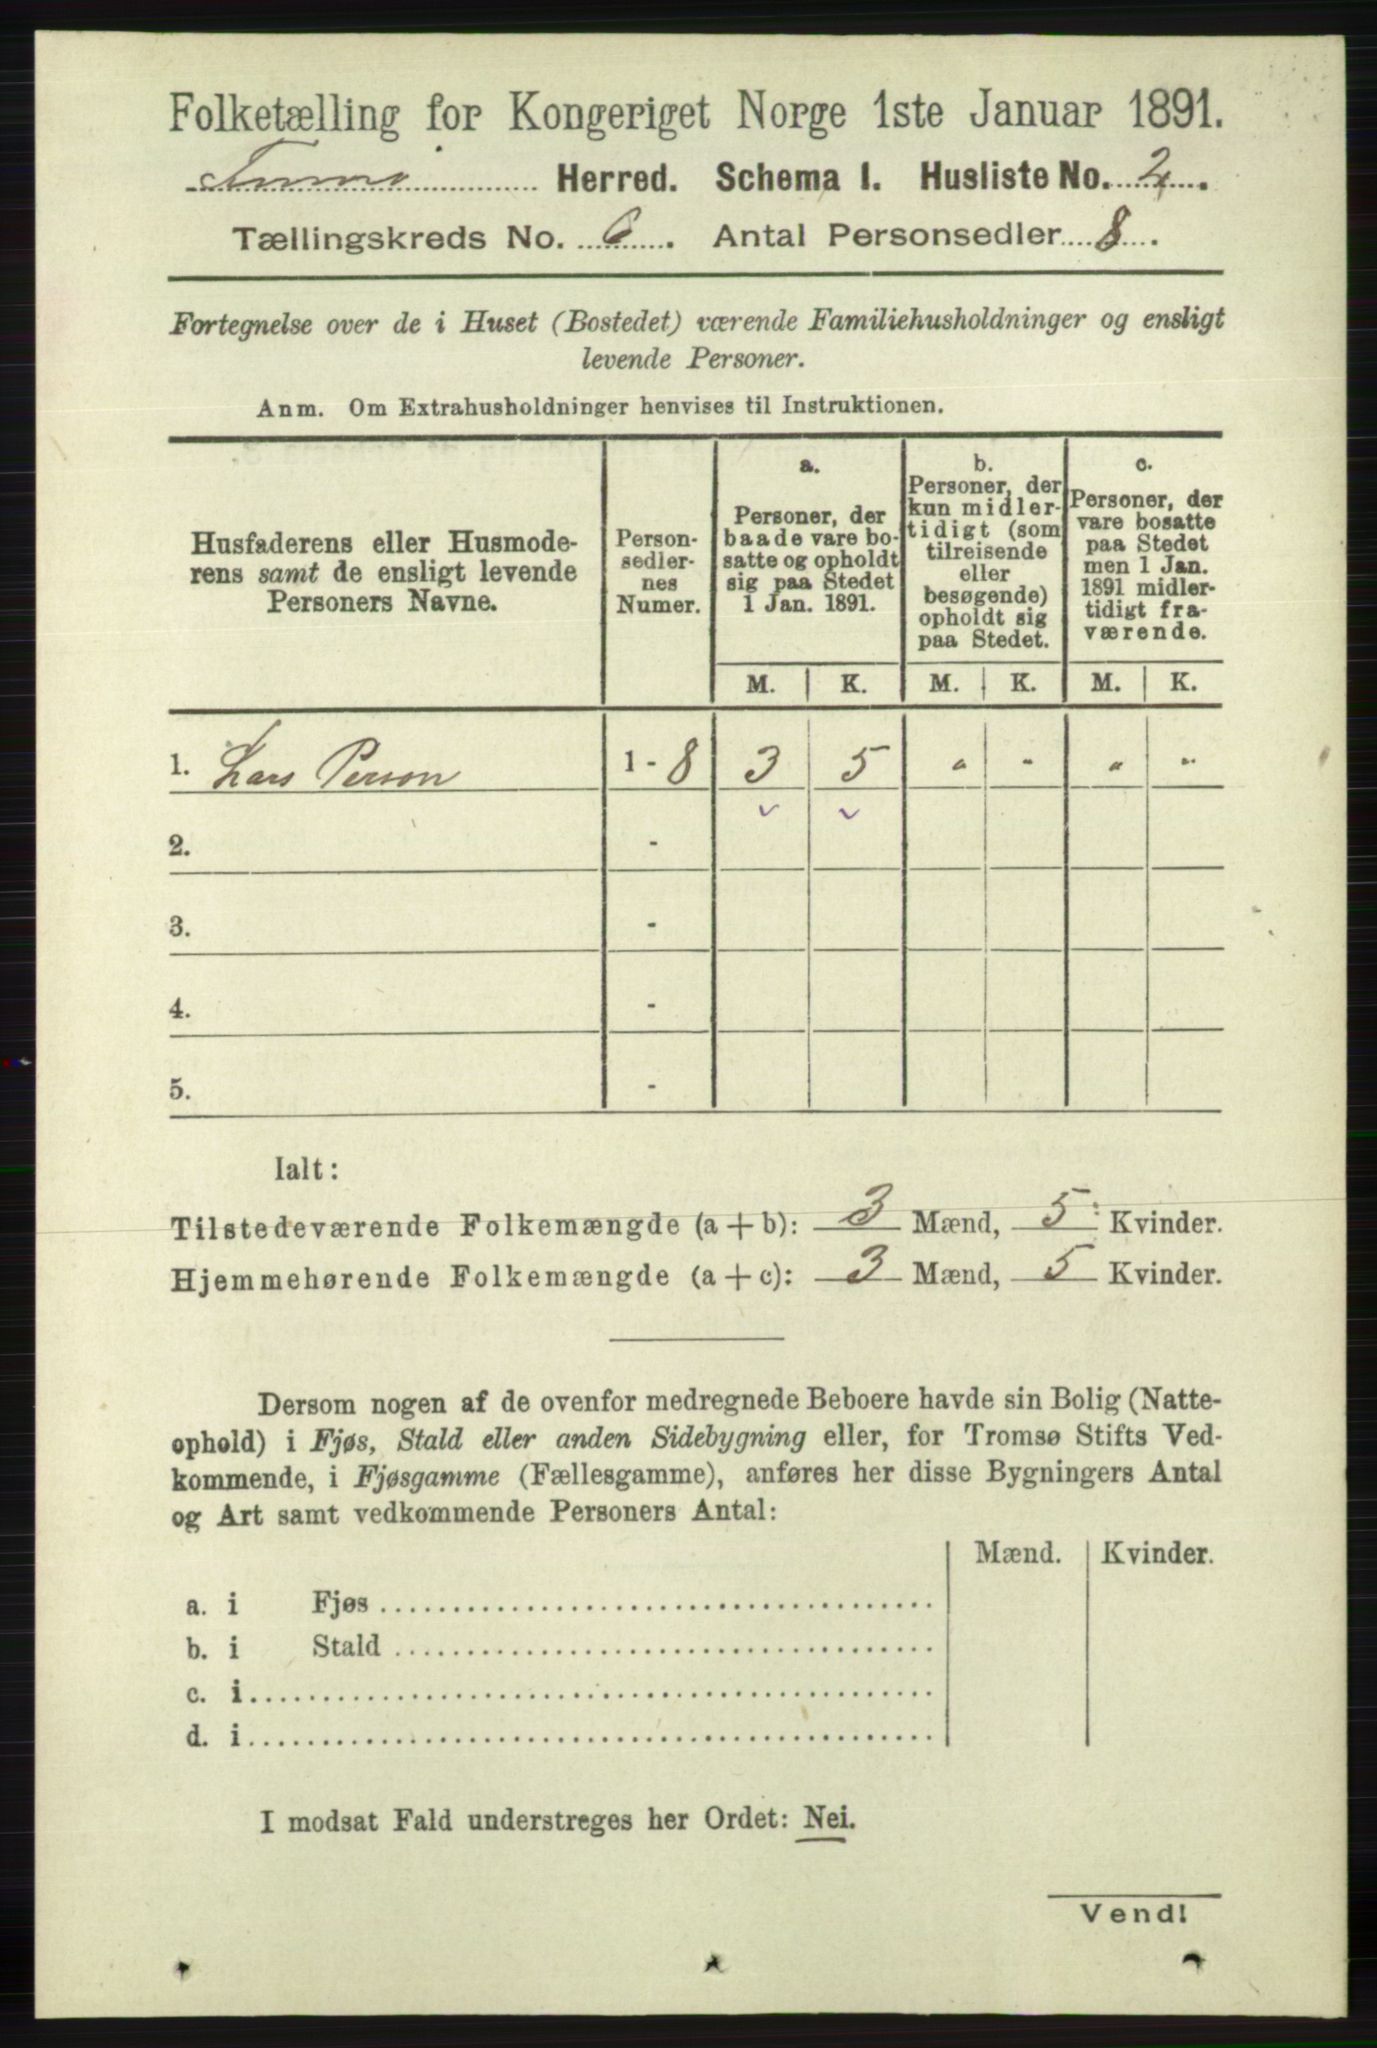 Folketælling for Kongeriget Norge 1ste Januar 1891.
Herred. Schema 1. Husliste No. 2.
Tællingskreds No. 6. Antal Personsedler 8.
Fortegnelse over de i Huset (Bostedet) værende Familiehusholdninger og ensligt
levende Personer.
Anm. Om Extrahusholdninger henvises til Instruktionen.
Husfaderens eller Husmode-
rens samt de ensligt levende
Personers Navne.
Person-
sedler-
nes
Numer.
a.
Personer, der
baade vare bo-
satte og opholdt
sig paa Stedet
1 Jan. 1891.
b.
Personer, der
kun midler-
tidigt (som
tilreisende
eller
besøgende)
opholdt sig
paa Stedet.
c.
Personer, der
vare bosatte
paa Stedet
men 1 Jan.
1891 midler-
tidigt fra-
værende.
M. K. M. K. M. K.
1. Lars Person 1 - 8 3 5 " " " "
2. -
3. -
4. -
5. -
Ialt:
Tilstedeværende Folkemængde (a + b): 3 Mænd, 5 Kvinder.
Hjemmehørende Folkemængde (a + c): 3 Mænd, 5 Kvinder.
Dersom nogen af de ovenfor medregnede Beboere havde sin Bolig (Natte-
ophold) i Fjøs, Stald eller anden Sidebygning eller, for Tromsø Stifts Ved-
kommende, i Fjøsgamme (Fællesgamme), anføres her disse Bygningers Antal
og Art samt vedkommende Personers Antal:
Mænd. Kvinder.
a. i Fjøs
b. i Stald
c. i
d. i
I modsat Fald understreges her Ordet: Nei.
Vend!